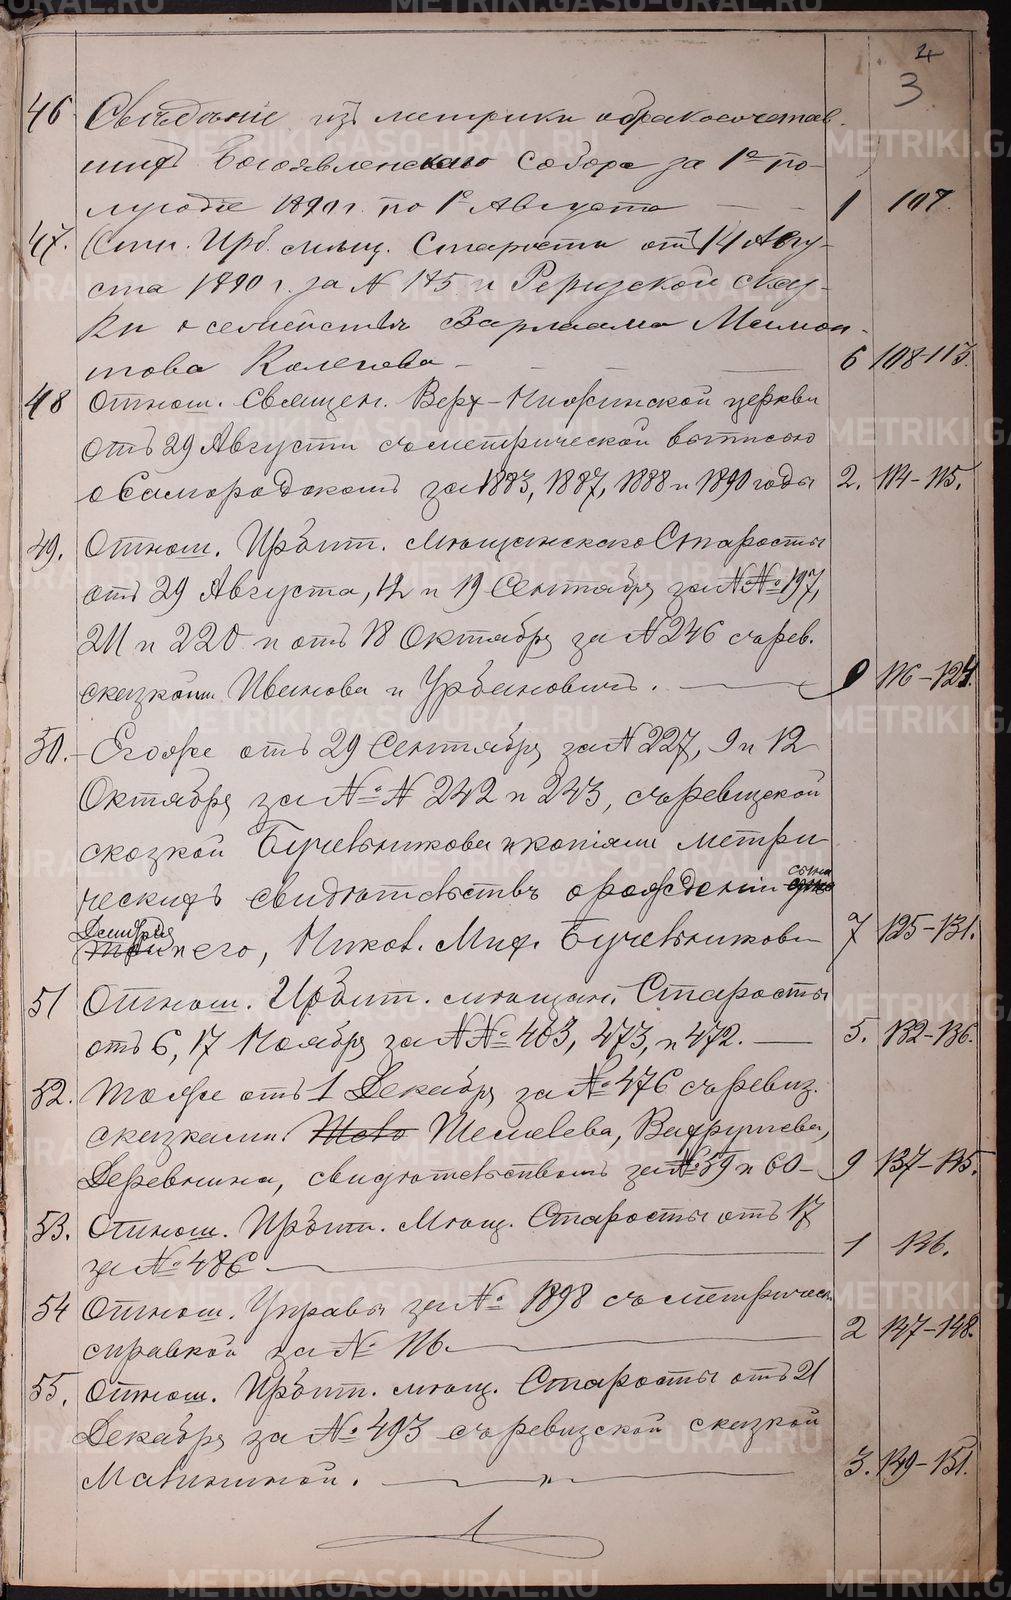 4
3
46 Свѣдѣніе изъ метрики о бракосочетав-
шихъ Богоявленскаго Собора за 1е по-
лугодіе 1890 г. по 1е Августа — — 1 107.
47. Отн. Ирб. мѣщ. Старосты отъ 14 Авгу-
ста 1890 г. за № 185 и Ревизской сказ-
ки о семействѣ Варлаама Мамон-
това Колегова — 6 108-113.
48 Отнош. Священ. Верх-Ницинской церкви
отъ 29 Августа съ метрической выписью
о Самородскомъ за 1883, 1887, 1888 и 1890 годы 2. 114-115.
49. Отнош. Ирбит. Мѣщанскаго Старосты
отъ 29 Августа, 12 и 19 Сентября за №№ 197,
211 и 220 и отъ 18 Октября за № 246 съ рев.
сказками Иванова и Урбановичъ. — 9 116-124.
50. Егоже отъ 29 Сентября за № 227, 9 и 12
Октября за №№ 242 и 243, съ ревизской
сказкой Бучельникова и копіями метри-
ческихъ свидѣтельствъ о рожденіи сына
Дмитрія и его, Никол. Мих. Бучельникова 7 125-131.
51 Отнош. Ирбит. мѣщан. Старосты
отъ 6, 17 Ноября за №№ 403, 473, и 472. — 5. 132-136.
52. Тоже отъ 1 Декабря за № 476 съ ревиз.
сказками Шемелева, Вахрушева,
Деревнина, свидѣтельствомъ за № 59 и 60 — 9 137-145.
53. Отнош. Ирбит. Мѣщ. Старосты отъ 17
за № 486 — 1 146.
54 Отнош. Управы за № 1898 съ метричес.
справкой за № 116. — 2 147-148.
55. Отнош. Ирбит. мѣщ. Старосты отъ 21
Декабря за № 493 съ ревизской сказкой
Мальгиной. — „ — 3. 149-151.
METRIKI.GASO-URAL.RU